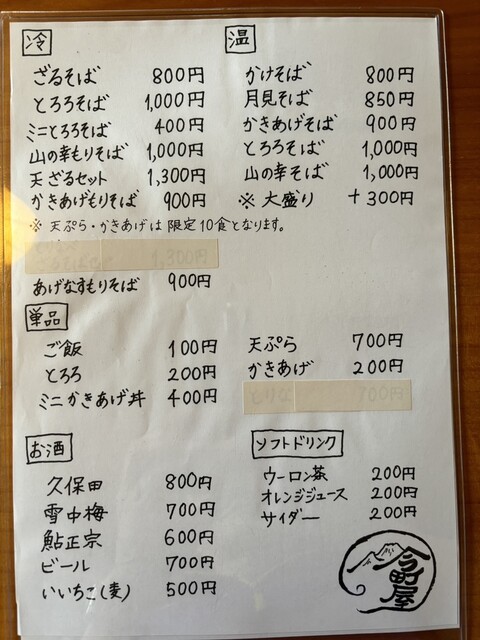 冷
ざるそば 800円
とろろそば 1,000円
ミニとろろそば 400円
山の幸もりそば 1,000円
天ざるセット 1,300円
かきあげもりそば 900円
※ 天ぷら・かきあげは 限定10食となります。
1,300円
あげなすもりそば 900円
温
かけそば 800円
月見そば 850円
かきあげそば 900円
とろろそば 1,000円
山の幸そば 1,000円
※ 大盛り +300円
単品
ご飯 100円
とろろ 200円
ミニかきあげ丼 400円
天ぷら 700円
かきあげ 200円
700円
お酒
久保田 800円
雪中梅 700円
鮎正宗 600円
ビール 700円
いいちこ(麦) 500円
ソフトドリンク
ウーロン茶 200円
オレンジジュース 200円
サイダー 200円
今町屋